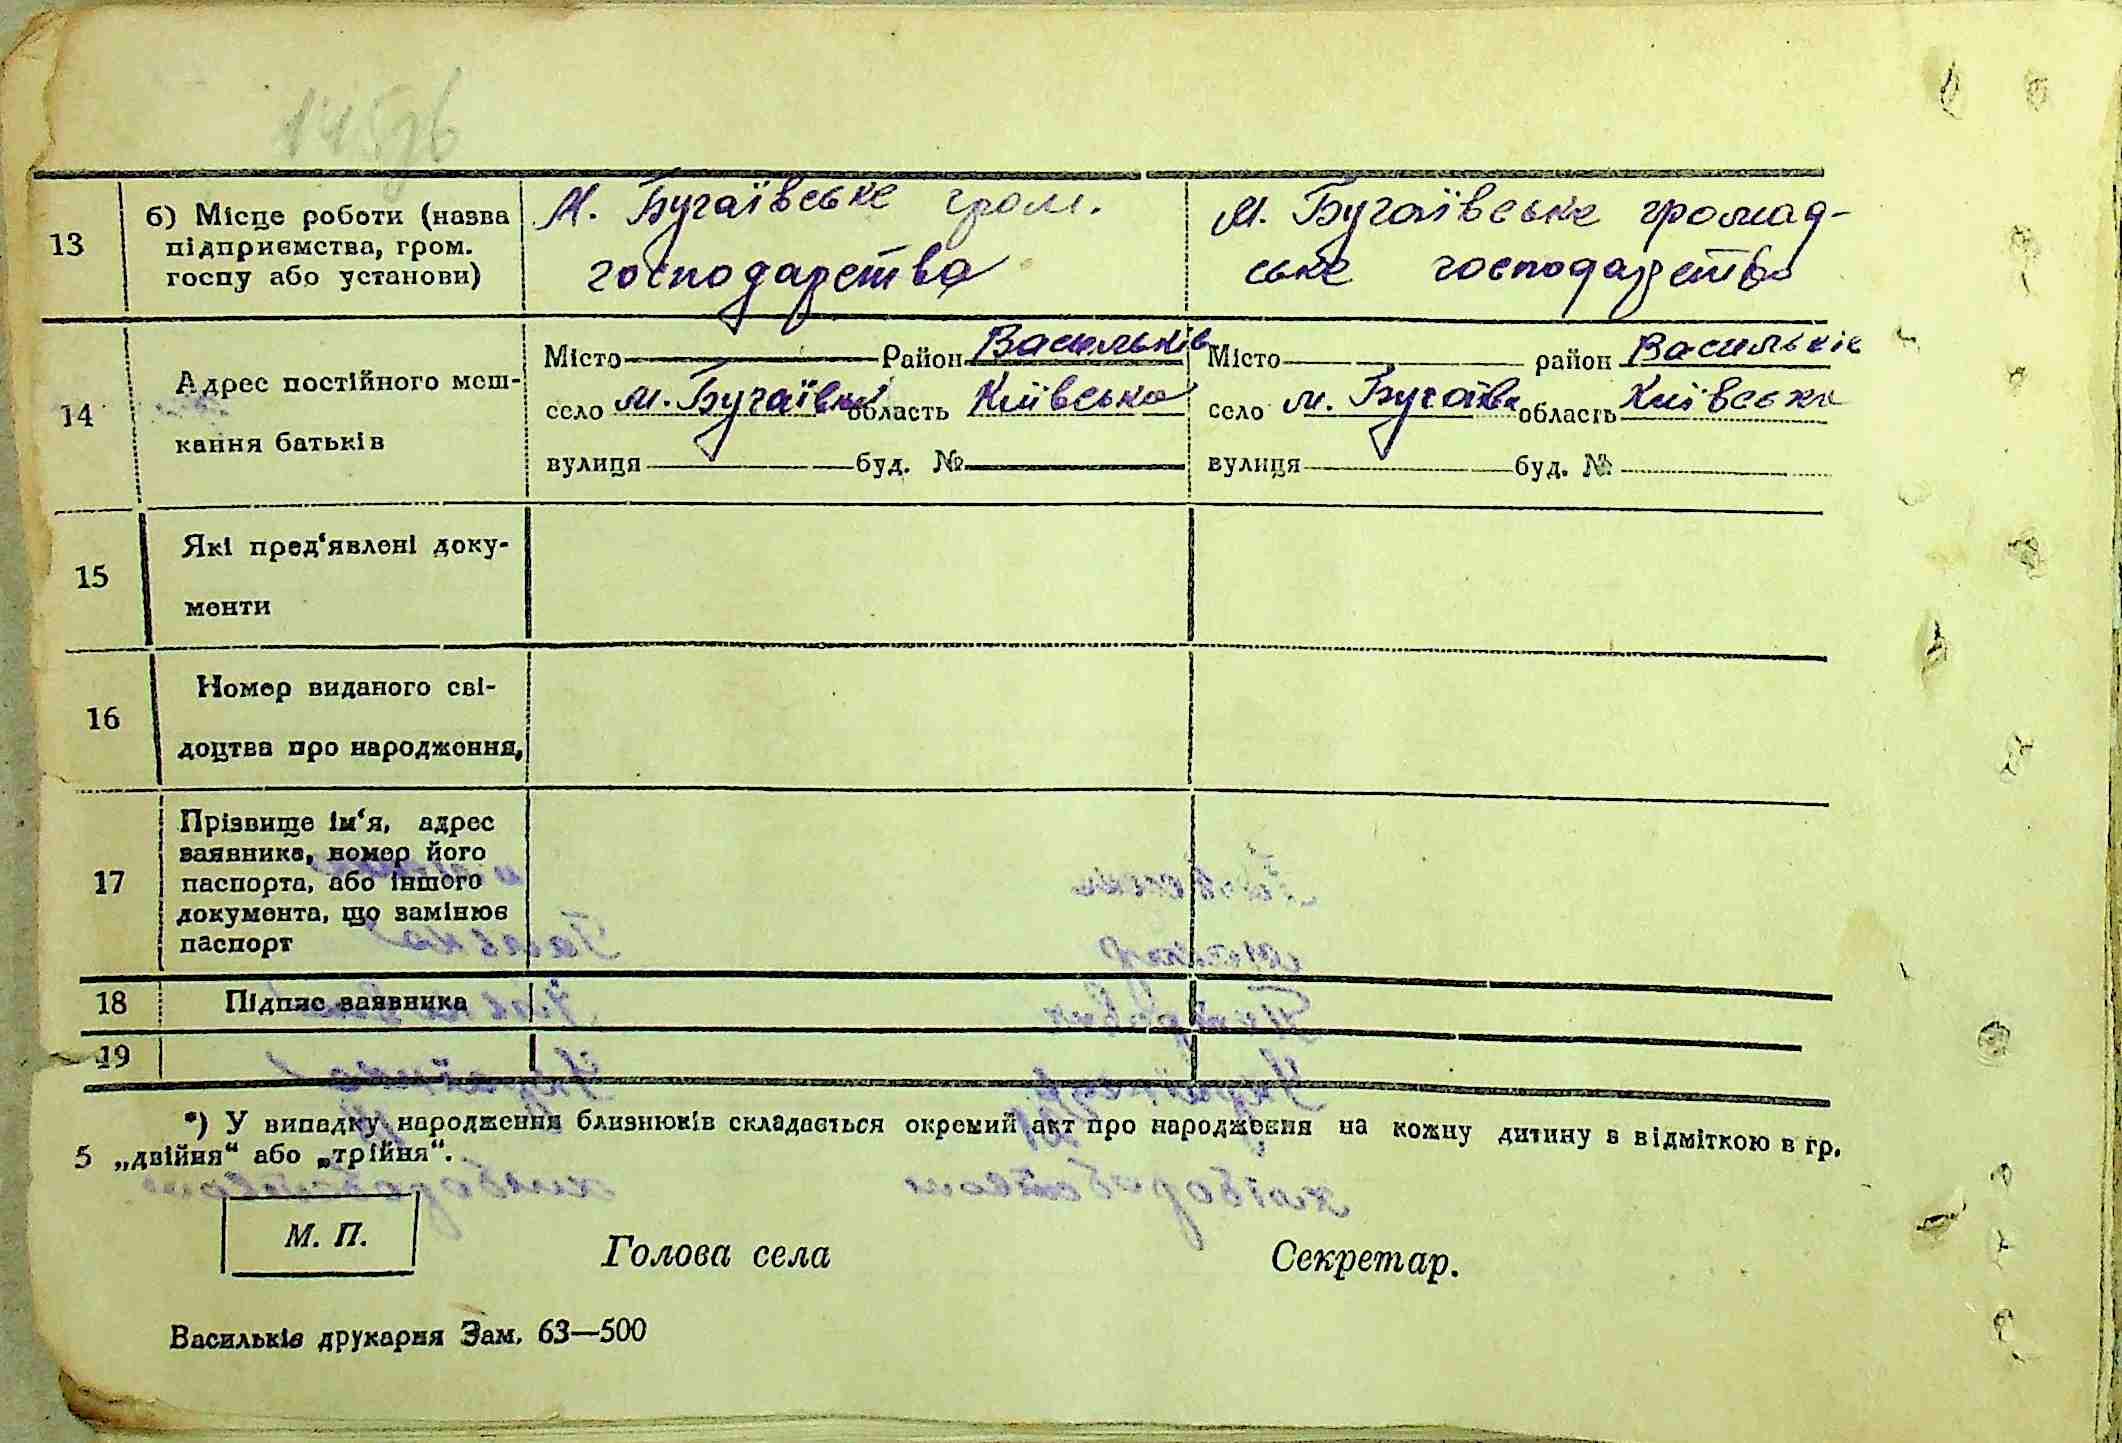 145зв
13 б) Місце роботи (назва підприємства, гром. госпу або установи)
М. Бугаївське гром.
господарство
м. Бугаївське громад-
ське господарство
14 Адрес постійного меш-
кання батьків
Місто Район Васильків
село м. Бугаївка область Київська
вулиця буд. №
Місто район Васильків
село м. Бугаївка область Київська
вулиця буд. №
15 Які пред‘явлені доку-
менти
16 Номер виданого сві-
доцтва про народження,
17 Прізвище ім‘я, адрес
заявника, номер його
паспорта, або іншого
документа, що замінює
паспорт
18 Підпис заявника
19
*) У випадку народження близнюків складається окремий акт про народження на кожну дитину з відміткою в гр.
5 „двійня“ або „трійня“.
М. П.
Голова села
Секретар.
Васильків друкарня Зам. 63—500